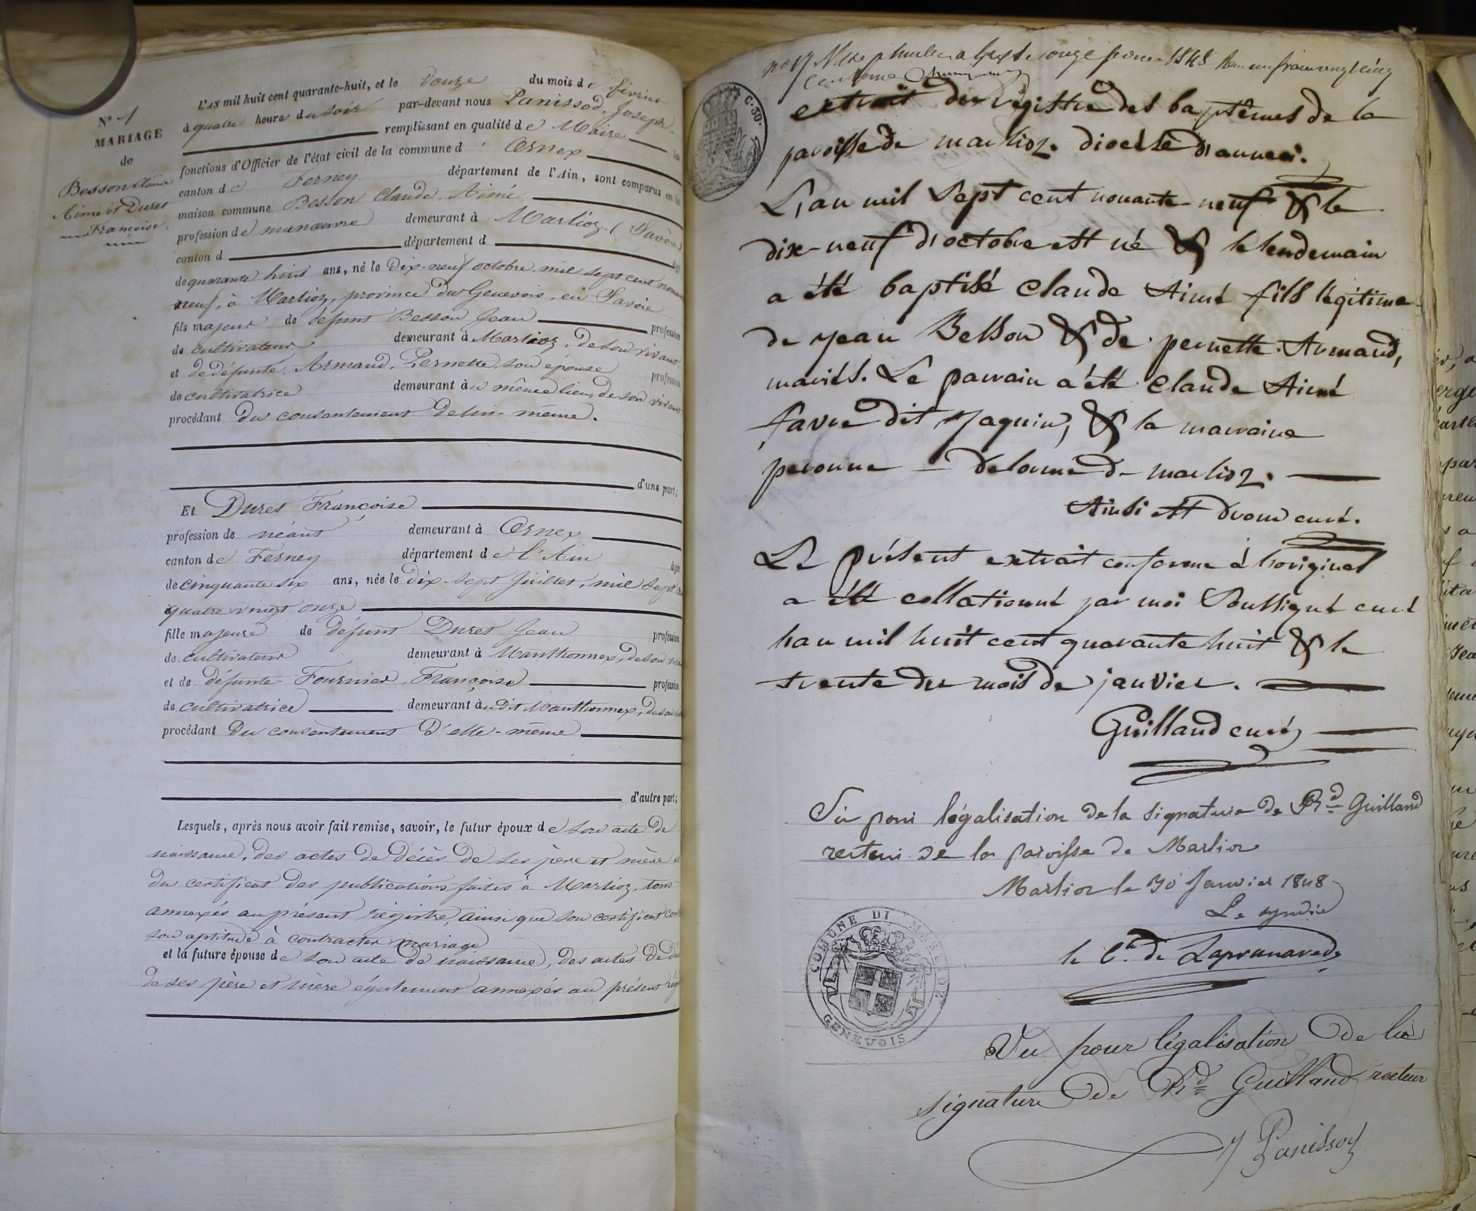 N° 1
MARIAGE
de
Besson Claude
Aimé et Duret
Françoise.
L'AN mil huit cent quarante-huit, et le douze du mois de février
à quatre heure du soir par-devant nous Panissod, Joseph
remplissant en qualité de Maire
fonctions d'Officier de l'état civil de la commune d'Ornex
canton de Ferney département de l'Ain, sont comparus en la
maison commune Besson Claude Aimé
profession de manœuvre demeurant à Marlioz (Savoie)
canton d département d
de quarante huit ans, né le Dix-neuf octobre mil sept cent nonante
neuf, à Marlioz, province du Genevois, en Savoie
fils majeur de défunt Besson Jean profession
de cultivateur demeurant à Marlioz, de son vivant
et de défunte Armand, Pernette, son épouse profession
de cultivatrice demeurant au même lieu, de son vivant
procédant du consentement de lui-même.
d'une part;
Et Duret Françoise
profession de néant demeurant à Ornex
canton de Ferney département de l'Ain
de cinquante six ans, née le dix-sept Juillet, mil sept cent
quatre vingt onze
fille majeure de défunt Duret Jean profession
de cultivateur demeurant à Manthonnex, de son
et de défunte Fournier, Françoise profession
de cultivatrice demeurant au dit Manthonnex, de son
procédant du consentement d'elle-même
d'autre part;
Lesquels, après nous avoir fait remise, savoir, le futur époux de son acte de
naissance, des actes de décès de ses père et mère
du certificat des publications faites à Marlioz, tous
annexés au présent régistre, ainsi que son certificat
son aptitude à contracter mariage
et la future épouse de son acte de naissance, des actes de
de ses père et mère également annexés au présent
C. 30.
extrait des régistre des baptêmes de la
paroisse de marlioz. diocèse d'anneci.
L'an mil sept cent nonante neuf & le
dix-neuf d'octobre est né & le lendemain
a été baptisé claude Aimé fils légitime
de jean Besson & de pernette Armand,
mariés. Le parrain a été claude Aimé
favre dit Jaquin, & la marraine
peronne delorme de marlioz.
Ainsi est Dvoux curé.
Le présent extrait conforme à l'original
a été collationné par moi soussigné curé
l'an mil huit cent quarante huit & le
trente du mois de janvier.
Guilland curé
Vu pour légalisation de la signature de Rd Guilland
recteur de la paroisse de Marlioz
Marlioz le 30 Janvier 1848
Le syndic
le Ct. de
COMUNE DI MARLIOZ
GENEVOIS
Vu pour légalisation de la
signature de Rd Guilland recteur
J Panissod